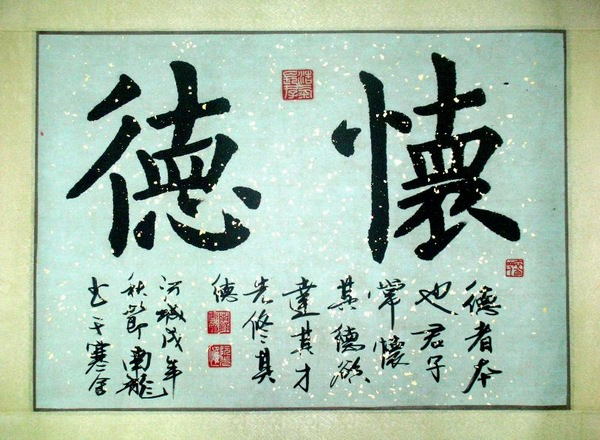 懷德
德者本
也君子
常懷
其德欲
達其才
先修其
德
戌年
秋節南龍
書于寒舍